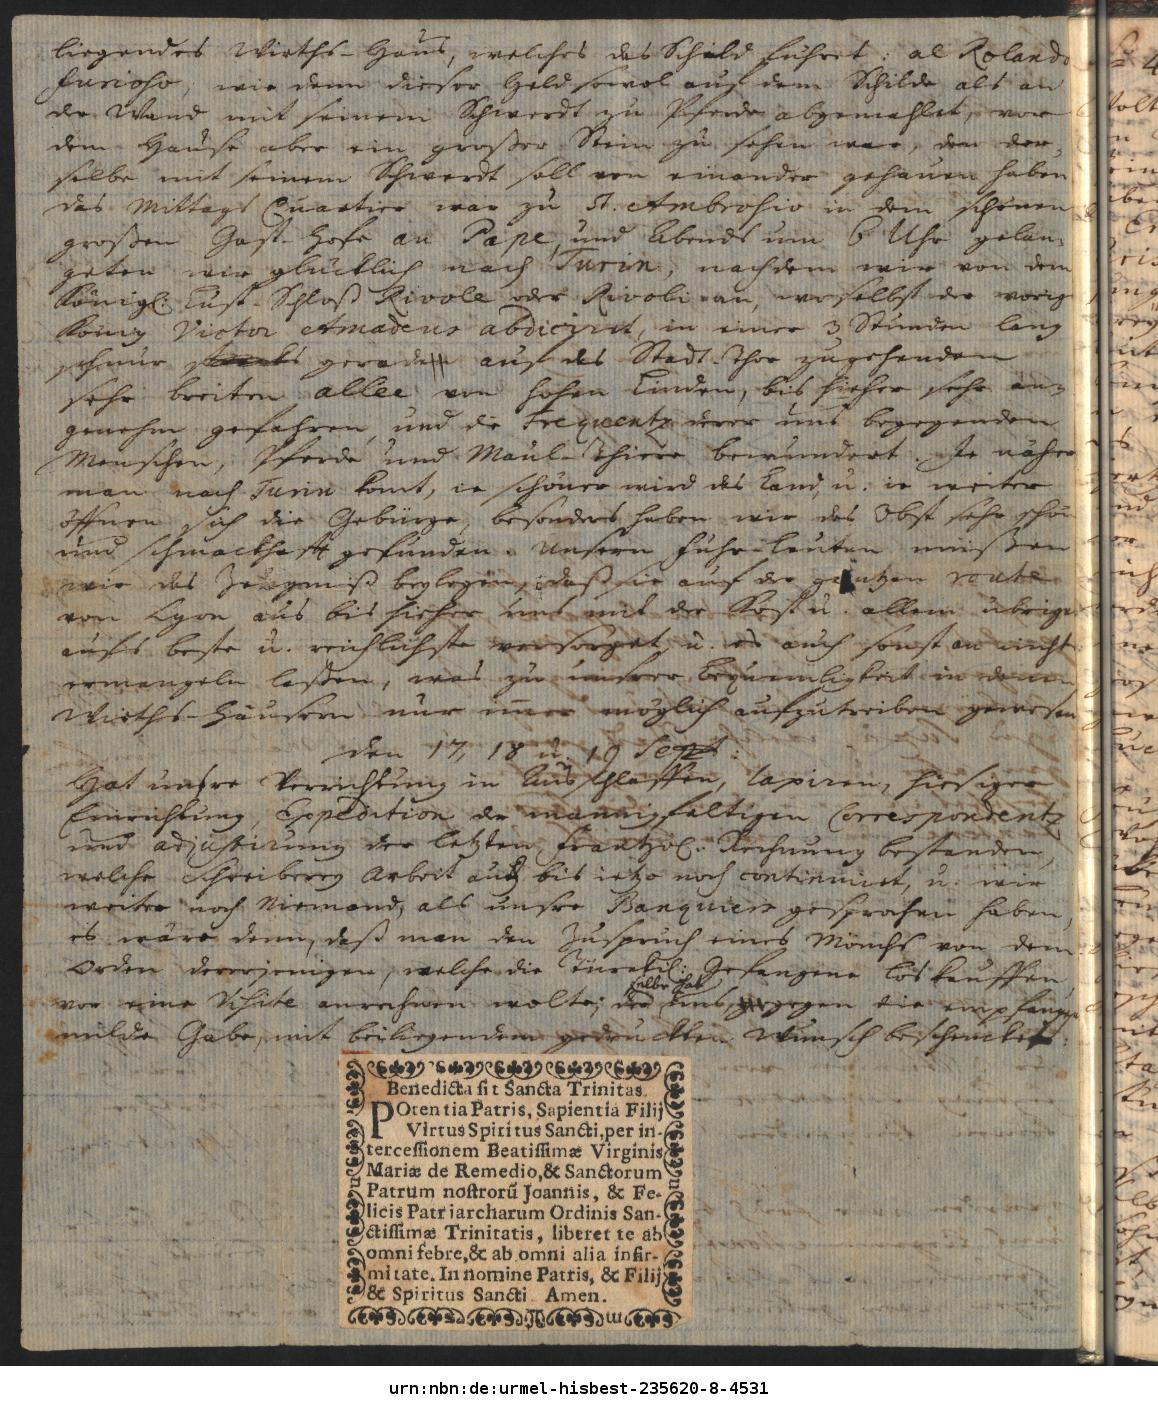 liegendes Wirths-Haus, welches das Schild führet: al Rolando
furioso, wie denn dieser Held sowol auf dem Schilde als an
der Wand mit seinem Schwerdt zu Pferde abgemahlet, vor
dem Hause aber ein großer Stein zu sehen war, den der-
selbe mit seinem Schwerdt soll von einander gehauen haben
das Mittags Quartier war zu St. Ambrosio in dem schönen
großen Gast-Hofe au Pape, und Abends um 6 Uhr gelan-
geten wir glücklich nach Turin, nachdem wir von dem
Königl: Lust-Schloß Rivole oder Rivoli an, woselbst der vorige
König Victor Amadeus abdiciret, in einer 3 Stunden lang
schnur gerade auf das Stadt-Thor zugehenden
sehr breiten allee von hohen Linden, bis hieher sehr an-
genehm gefahren, und die Frequentz derer uns begegenden
Menschen, Pferde und Maul-Thiere bewundert. Je näher
man nach Turin komt, ie schöner wird das Land, u. ie weiter
öffnen sich die Gebürge, besonders haben wir das Obst sehr schön
und schmackhaft gefunden. Unsern Fuhr-Leuten müssen
wir das Zeugniß beylegen, daß sie auf der gantzen route
von Lyon aus bis hieher uns mit der Kost u. allem übrigen
aufs beste u. reichlichste versorget, u. es auch sonst an nicht
ermangeln laßen, was zu unserer Bequemligkeit in denen
Wirths-Häusern nur immer möglich aufzutreiben gewesen
den 17, 18 u. 19 Sept:
Hat unsre Verrichtung in Ausschlaffen, hiesiger
Einrichtung, Expedition der mannigfaltigen Correspondentz
und adjustirung der letzten Frantzöl: Rechnung bestanden,
welche Schreiberey Arbeit auch bis ietzo noch continuiret, u. wir
weiter noch Niemand, als unsre Banquiers gesprochen haben,
es wäre denn, daß man den Zuspruch eines Mönchs von dem
Orden dererjenigen, welche die Gefangene loskauffen,
vor eine Visite anrechnen wolte; uns, gegen die empfangene
milde Gabe, mit beiliegendem gedruckten Wunsch beschencket:
Benedicta sit Sancta Trinitas.
POtentia Patris, Sapientia Filij
Virtus Spiritus Sancti, per in-
tercessionem Beatissimæ Virginis
Mariæ de Remedio, & Sanctorum
Patrum nostrorũ Joannis, & Fe-
licis Patriarcharum Ordinis San-
ctissimæ Trinitatis, liberet te ab
omni febre, & ab omni alia infir-
mitate. In nomine Patris, & Filij
& Spiritus Sancti. Amen.
urn:nbn:de:urmel-hisbest-235620-8-4531